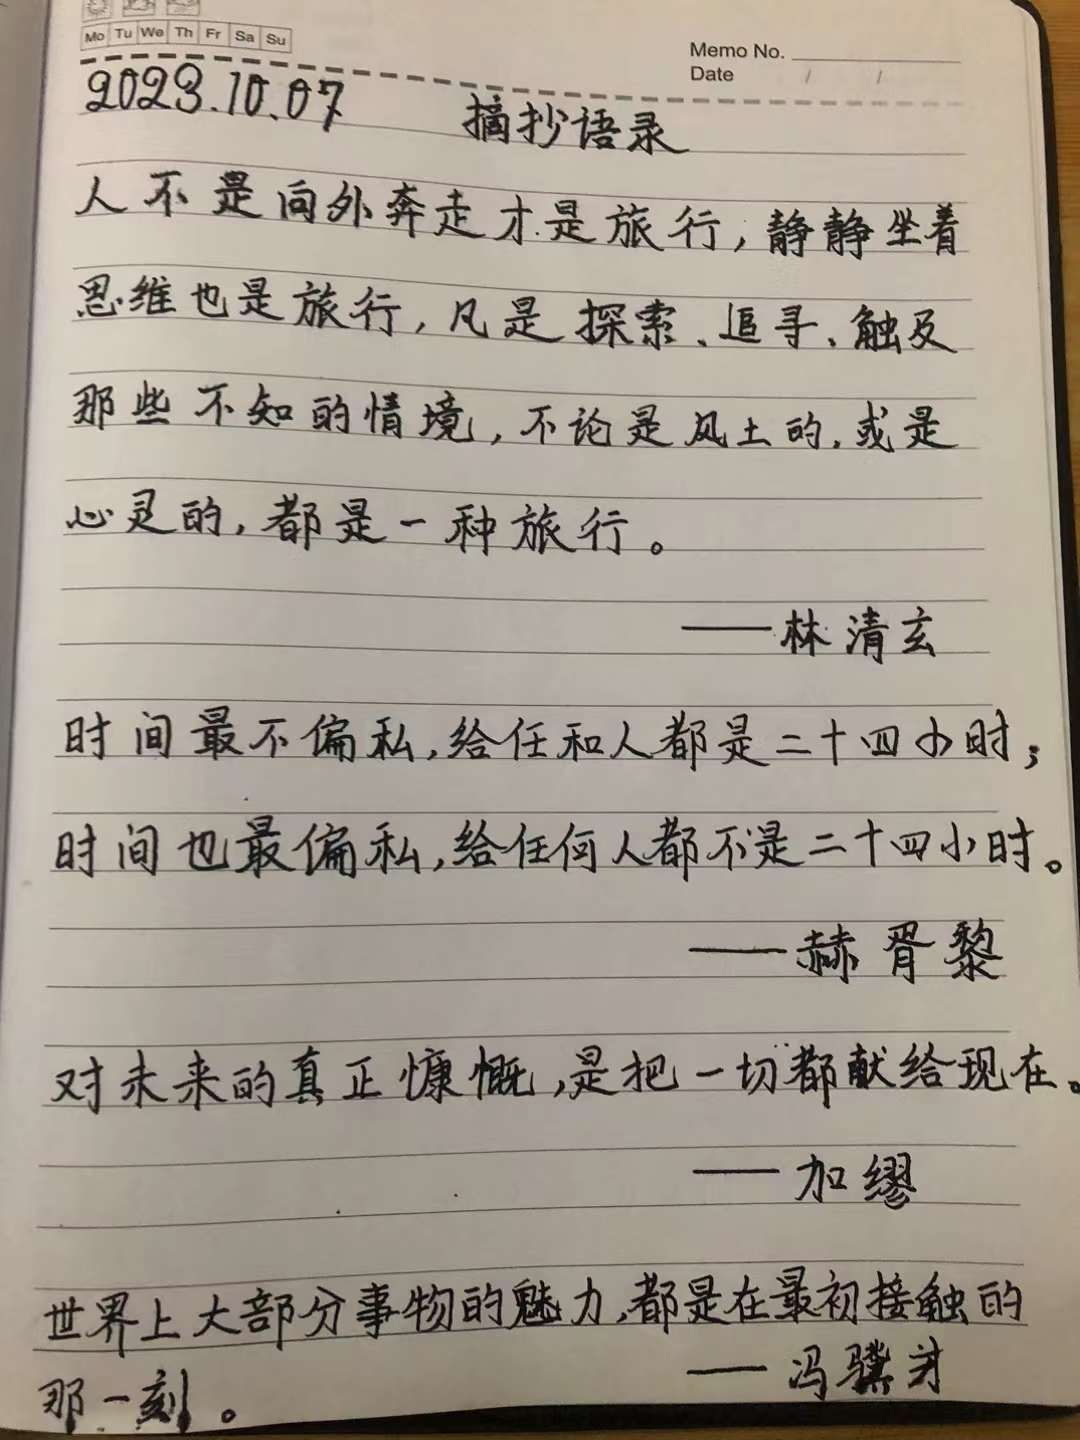 Mo Tu We Th Fr Sa Su
Memo No.
Date / /
2023.10.07 摘抄语录
人不是向外奔走才是旅行,静静坐着
思维也是旅行,凡是探索、追寻、触及
那些不知的情境,不论是风土的,或是
心灵的,都是一种旅行。
——林清玄
时间最不偏私,给任和人都是二十四小时;
时间也最偏私,给任何人都不是二十四小时。
——赫胥黎
对未来的真正慷慨,是把一切都献给现在。
——加缪
世界上大部分事物的魅力,都是在最初接触的
那一刻。 ——冯骥才